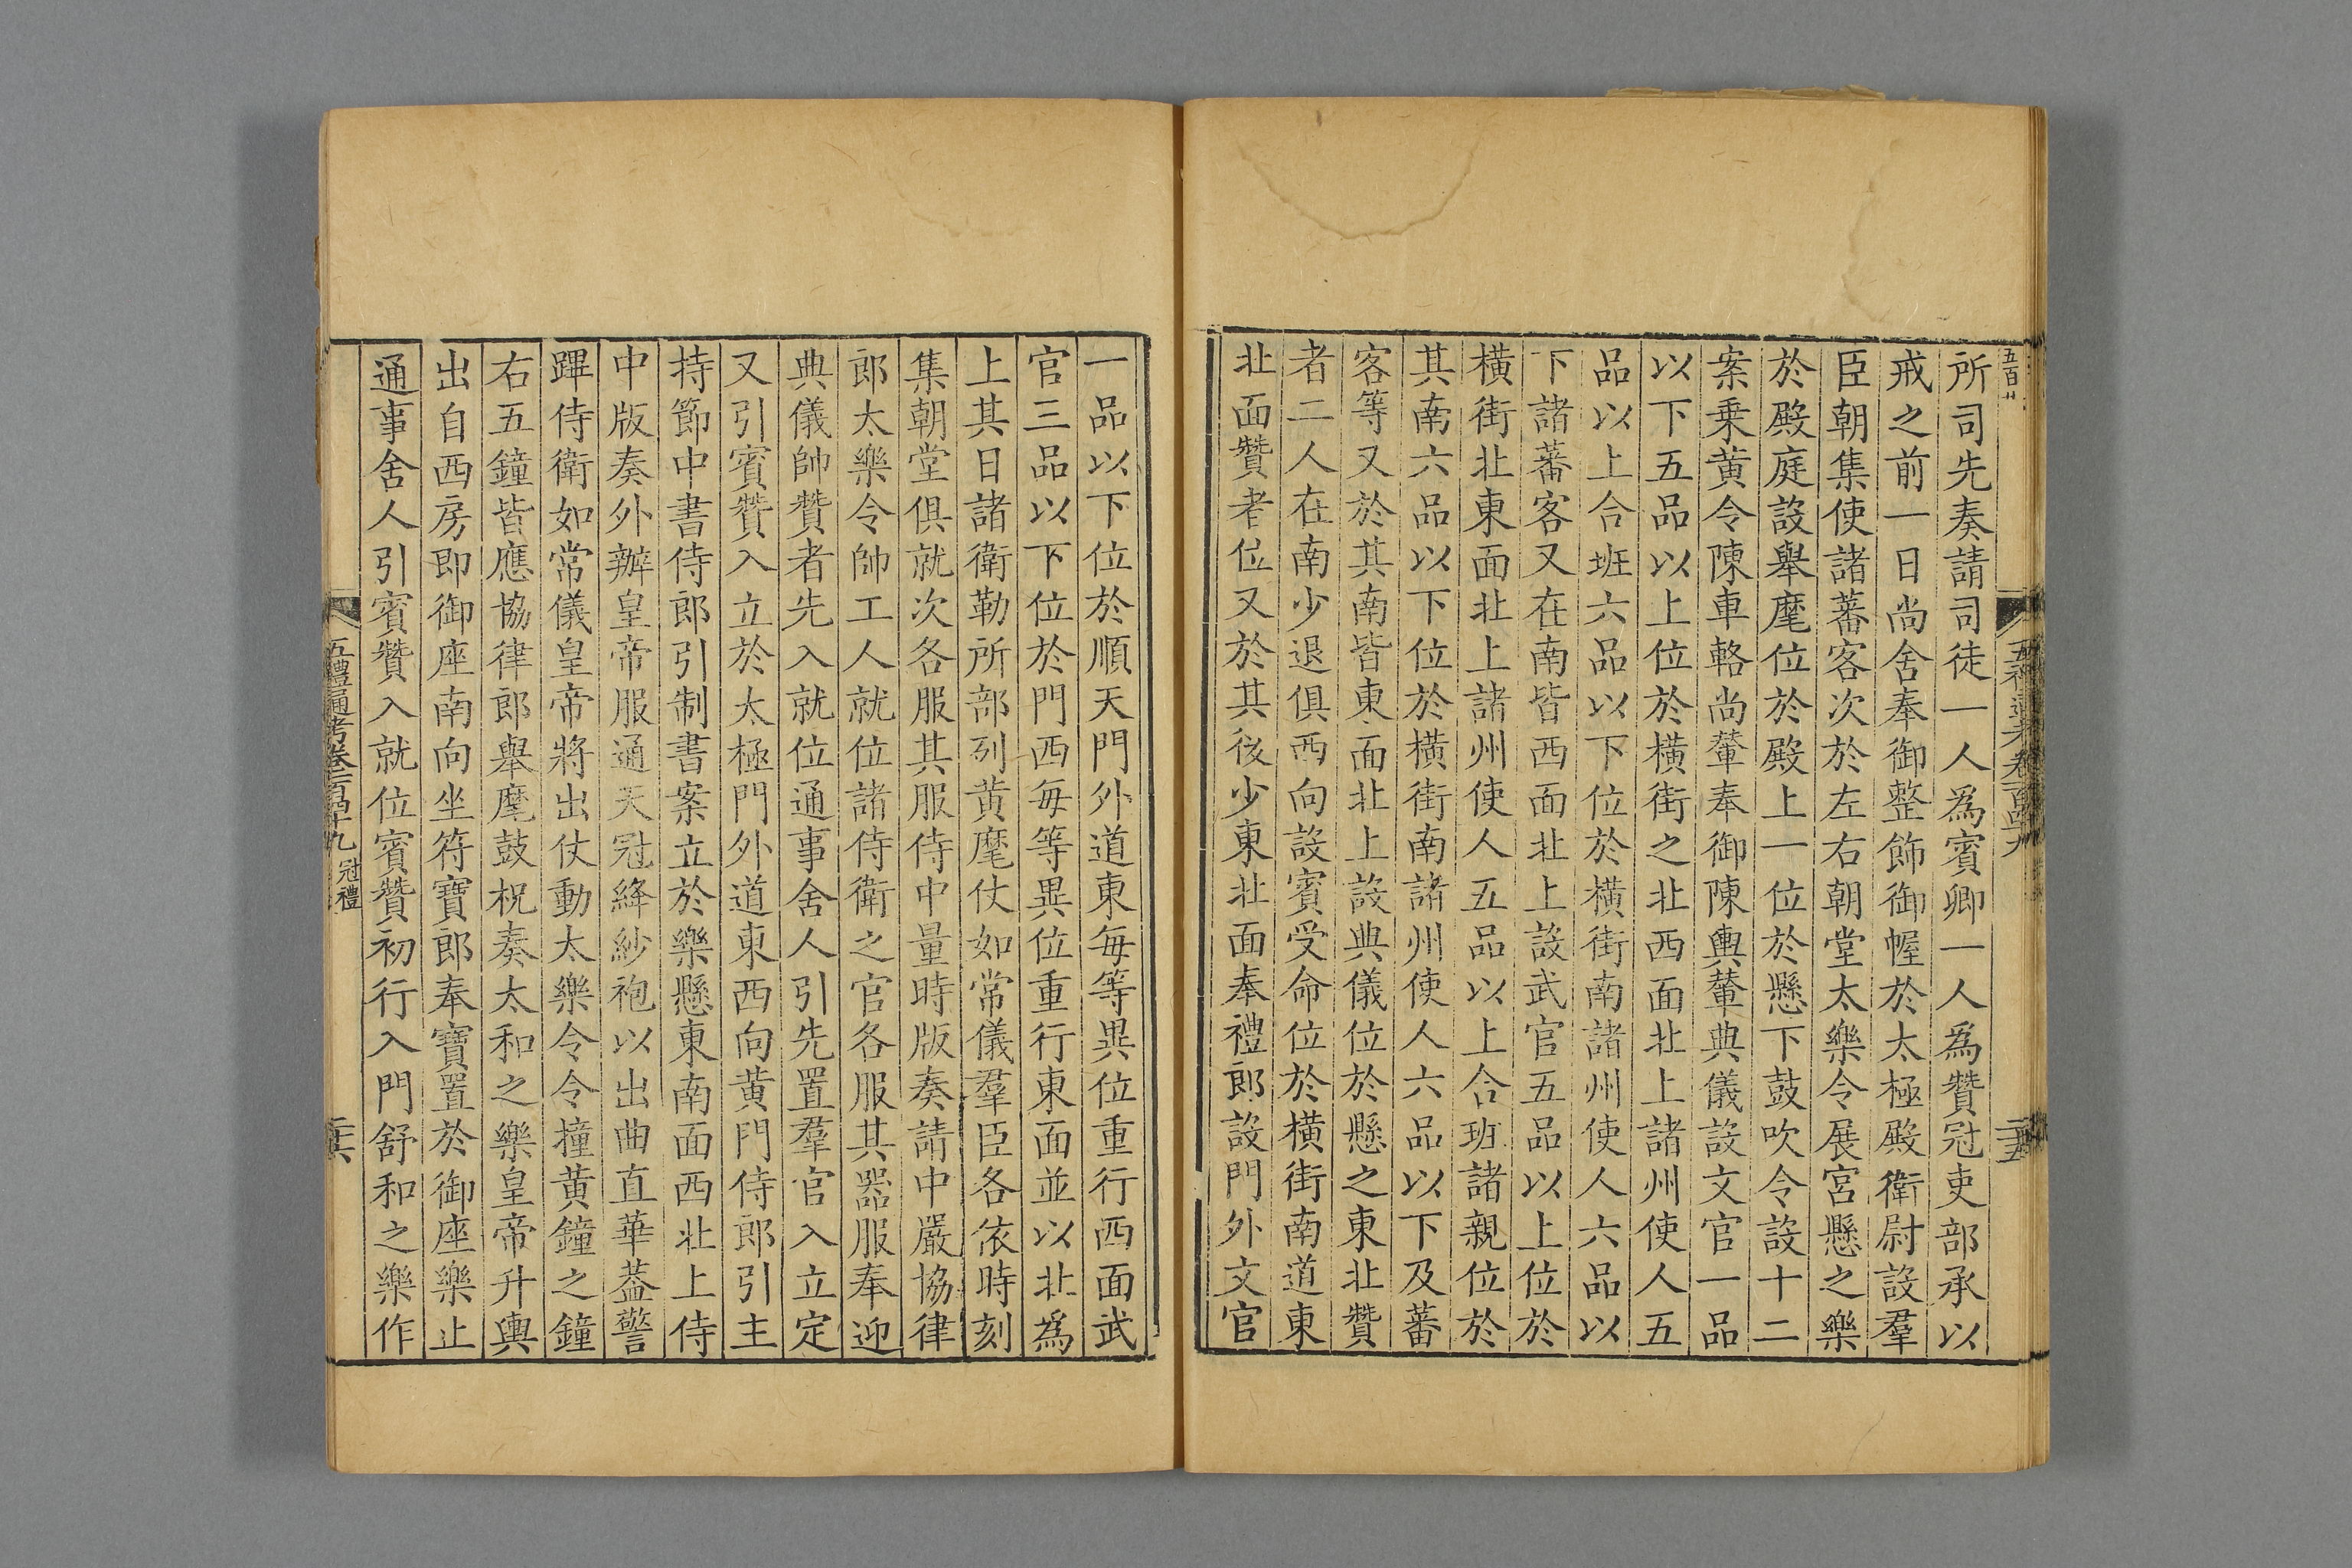 所司先奏請司徒一人爲賓卿一人爲贊冠吏部承以
戒之前一日尚舍奉御整飾御幄於太極殿衛尉設羣
臣朝集使諸蕃客次於左右朝堂太樂令展宮懸之樂
於殿庭設舉麾位於殿上一位於懸下鼓吹令設十二
案乗黄令陳車輅尚輦奉御陳輿輦典儀設文官一品
以下五品以上位於橫街之北西面北上諸州使人五
品以上合班六品以下位於橫街南諸州使人六品以
下諸蕃客又在南皆西面北上設武官五品以上位於
橫街北東面北上諸州使人五品以上合班諸親位於
其南六品以下位於橫街南諸州使人六品以下及蕃
客等又於其南皆東面北上設典儀位於懸之東北贊
者二人在南少退俱西向設賓受命位於橫街南道東
北面贊者位又於其後少東北面奉禮郎設門外文官
一品以下位於順天門外道東每等異位重行西面武
官三品以下位於門西每等異位重行東面並以北爲
上其日諸衛勒所部列黄麾仗如常儀羣臣各依時刻
集朝堂俱就次各服其服侍中量時版奏請中嚴協律
郎太樂令帥工人就位諸侍衛之官各服其器服奉迎
典儀帥贊者先入就位通事舍人引先置羣官入立定
又引賓贊入立於太極門外道東西向黄門侍郎引主
持節中書侍郎引制書案立於樂懸東南面西北上侍
中版奏外辦皇帝服通天冠絳紗袍以出曲直華蓋警
蹕侍衛如常儀皇帝將出仗動太樂令令撞黄鐘之鐘
右五鐘皆應協律郎舉麾鼓柷奏太和之樂皇帝升輿
出自西房即御座南向坐符寶郎奉寶置於御座樂止
通事舍人引賓贊入就位賓贊初行入門舒和之樂作
五禮通考卷一百四十九 冠禮
二十六